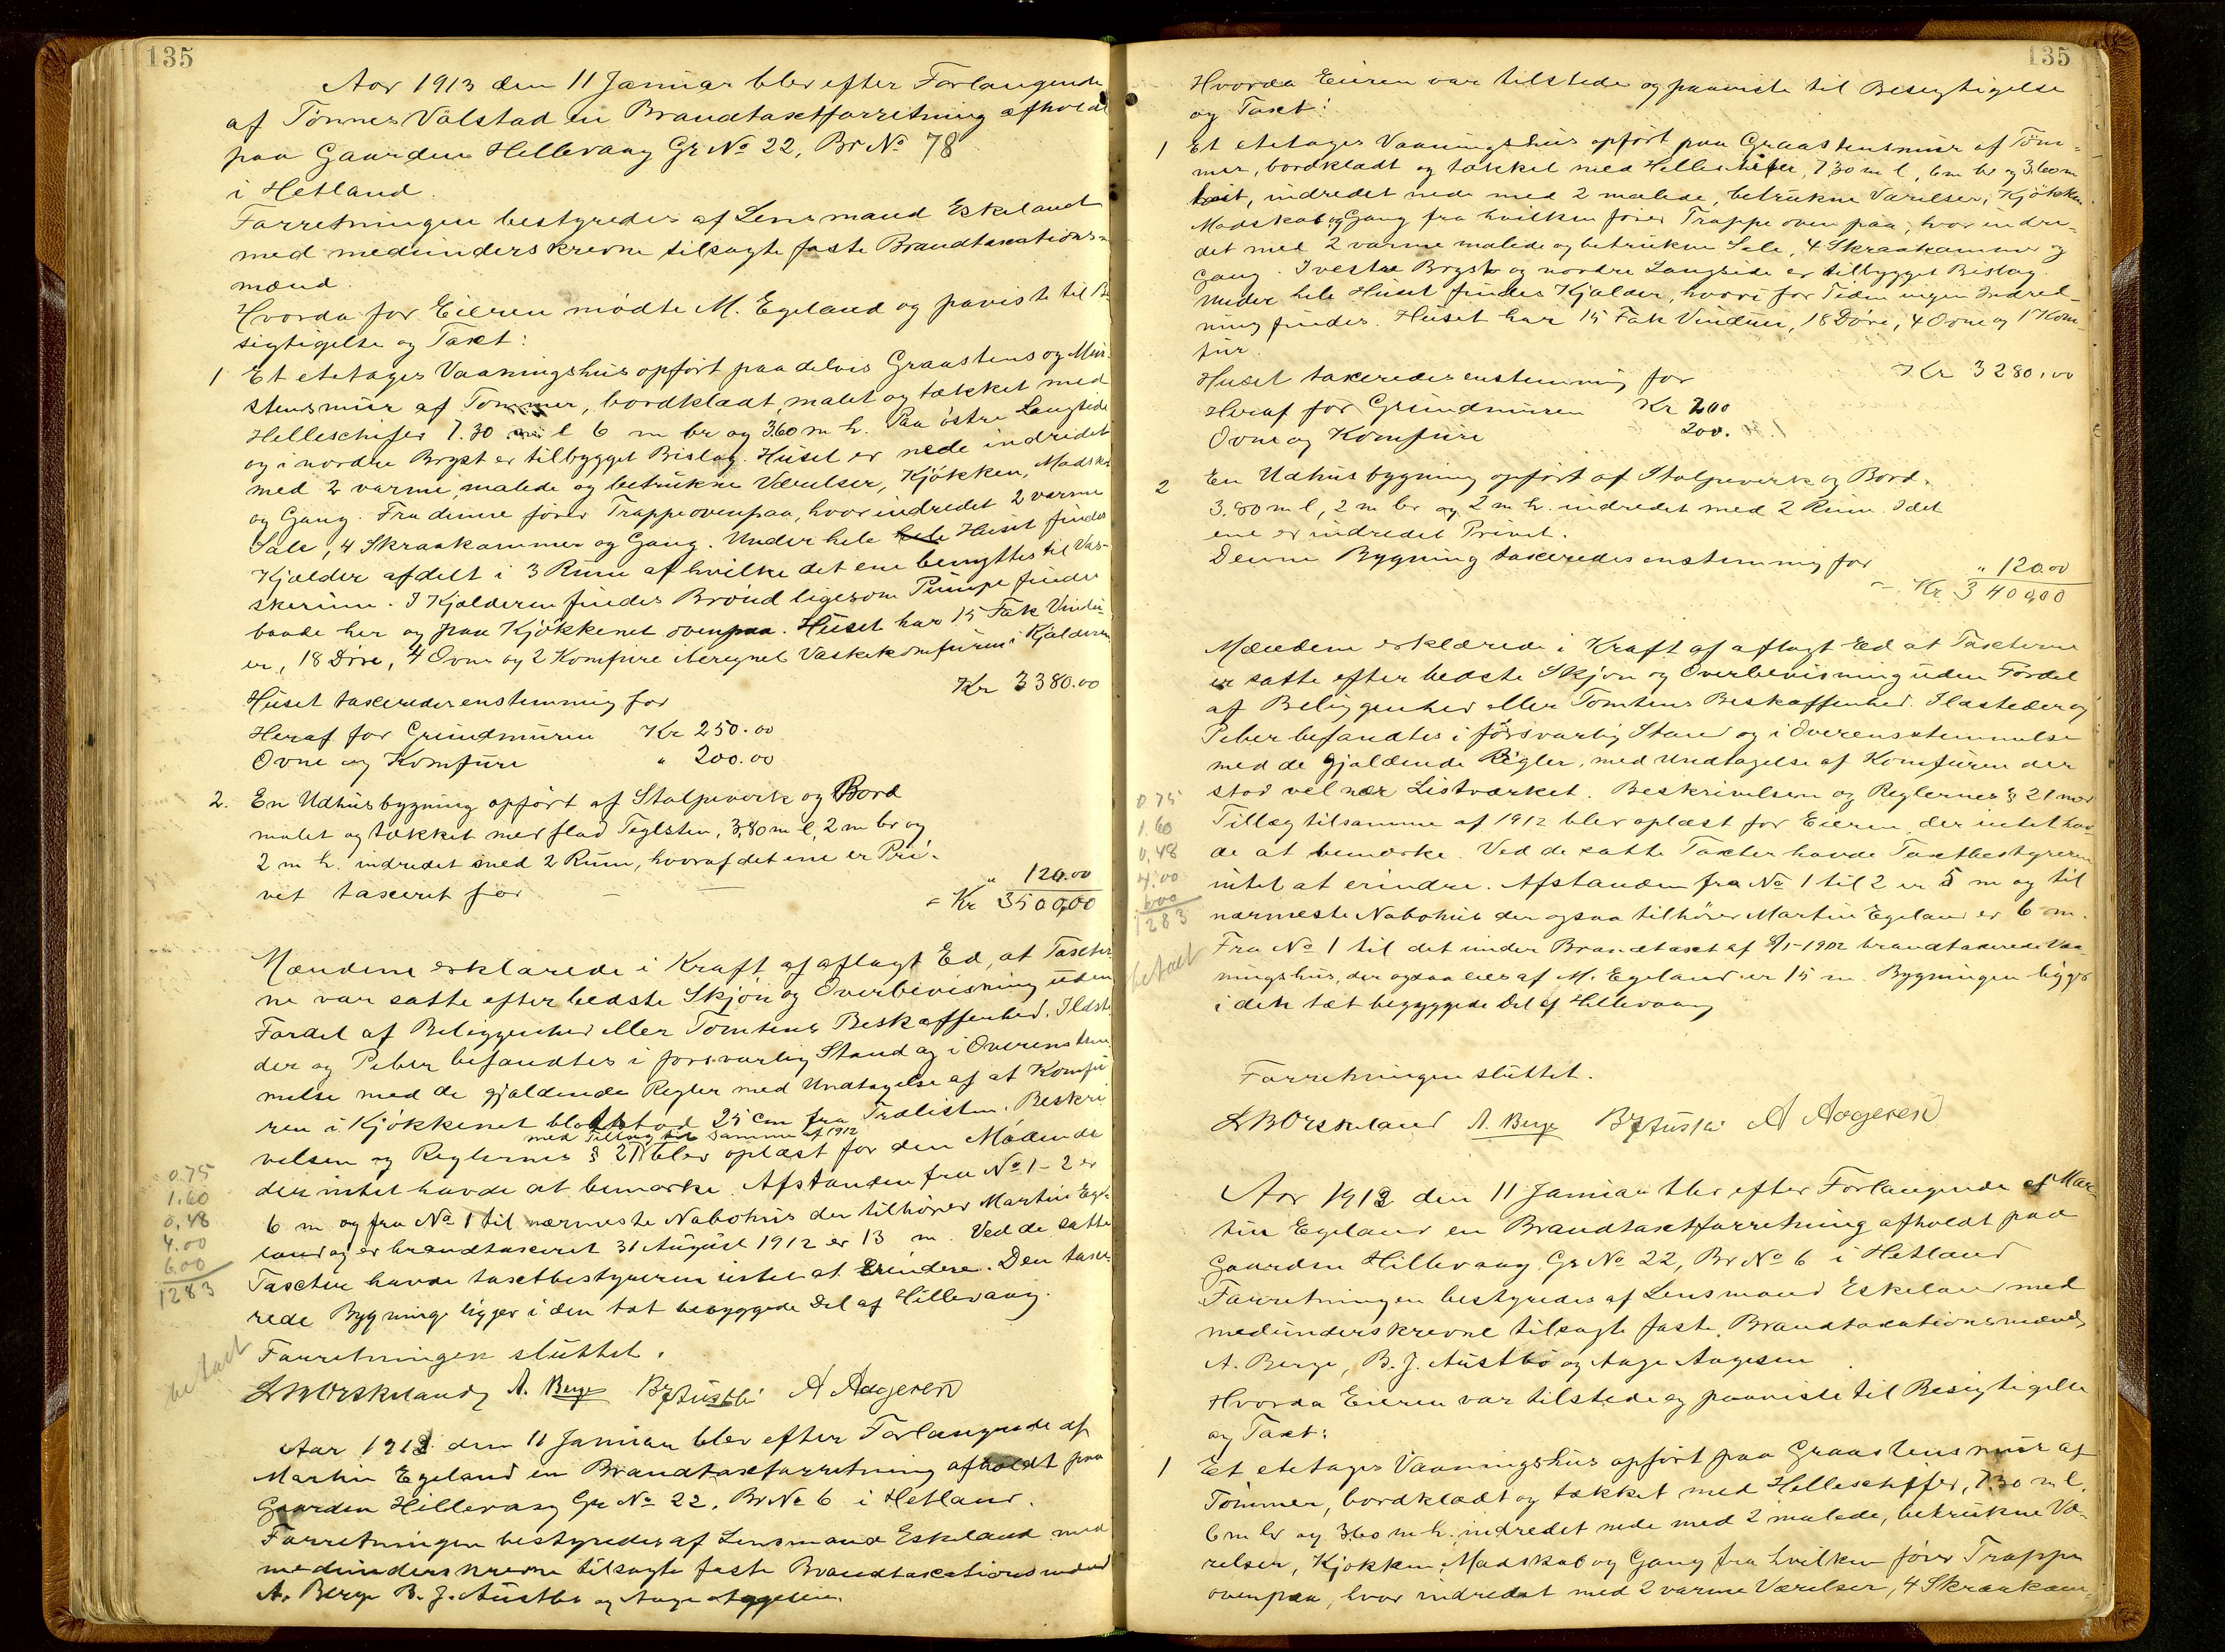 135
Aar 1913 den 11 Januar blev efter Forlangende
af Tønnes Valstad en Brandtaxtforretning afholdt
paa Gaarden Hillevaag Gr No 22, Br No 78
i Hetland.
Forretningen bestyredes af Lensmand Eskeland
med medunderskrevne tilsagte faste Brandtaxations-
mænd.
Hvorda for Eieren mødte M. Egeland og paviste til Be-
sigtigelse og Taxt:
1 Et etetages Vaaningshus opført paa delvis Graastens og Mur-
stensmur af Tømmer, bordklædt, malet og tækket med
Helleschifer 7.30 m l 6 m br og 3.60 m h. Paa østre Langside
og i nordre Bryst er tilbygget Bislag. Huset er nede indredet
med 2 varme, malede og betrukne Værelser, Kjøkken, Madskab
og Gang. Fra denne fører Trappe ovenpaa, hvor indredet 2 varme
Sale, 4 Skraakammer og Gang. Under hele hele Huset findes
Kjælder afdelt i 3 Rum af hvilke det ene benyttes til Vas-
skerum. I Kjælderen findes Brønd ligesom Pumpe findes
baade her og paa Kjøkkenet ovenpaa. Huset har 15 Fak Vindu-
er, 18 Døre, 4 Ovne og 2 Komfure iberegnet Vaskekomfuren i Kjælderen
Huset taxeredes enstemmig for Kr 3380.00
Heraf for Grundmuren Kr 250.00
Ovne og Komfure " 200.00
2. En Udhusbygning opført af Stolpeverk og Bord
malet og tækket med flad Teglsten, 3,80 m l, 2 m br og
2 m h. indredet med 2 Rum, hvoraf det ene er Pri-
vet taxeret for " 120.00
= Kr 3500,00
Mændene erklærede i Kraft af aflagt Ed, at Taxter-
ne var satte efter bedste Skjøn og Overbevisning uden
Fordel af Beliggenhed eller Tomtens Beskaffenhed. Ildste-
der og Peber befandtes i forsvarlig Stand og i Overenstem-
melse med de gjældende Regler med Undtagelse af at Komfu-
ren i Kjøkkenet blot stod 25 cm fra Trælisten. Beskri-
med Tillæg til samme af 1912
velsen og Reglernes § 21 blev oplæst for den Mødende
der intet havde at bemærke. Afstanden fra No 1-2 er
6 m og fra No 1 til nærmeste Nabohus der tilhører Martin Ege-
land og er brandtaxeret 31 August 1912 er 13 m. Ved de satte
Taxter havde taxtbestyreren intet at erindre. Den taxe-
rede Bygninge ligger i den tæt bebyggede Del af Hillevaag.
0.75
1.60
0,48
4.00
6.00
1283
betalt
Forretningen sluttet.
A. Berge
A Aagesen
Aar 1913 den 11 Januar blev efter Forlangende af
Martin Egeland en Brandtaxtforretning afholdt paa
Gaarden Hillevaag Gr No 22, Br No 6 i Hetland.
Forretningen bestyredes af Lensmand Eskeland med
medunderskrevne tilsagte faste Brandtaxationsmænd
A. Berge B. J. Austbø og Aage Aagesen.
135
Hvorda Eieren var tilstede og paaviste til Besigtigelse
og Taxt:
1 Et etetages Vaaningshus opført paa Graastensmur af Tøm-
mer, bordklædt og tækket med Helleschifer, 7,30 m l, 6 m br og 3.60 m
høit, indredet nede med 2 malede, betrukne Værelser, Kjøkken
Madskab og Gang fra hvilken fører Trappe oven paa, hvor indre-
det med 2 varme malede og betrukne Sale, 4 Skraakammer og
Gang. I vestre Bryst og nordre Langside er tilbygget Bislag.
Under hele Huset findes Kjælder, hvori for Tiden ingen Indred-
ning findes. Huset har 15 Fak Vinduer, 18 Døre, 4 Ovne og 1 Kom-
fur.
Huset taxeredes enstemmig for Kr 3280.00
Heraf for Grundmuren Kr 200
Ovne og Komfure 200.
2 En Udhusbygning opført af Stolpeverk og Bord.
3.80 m l, 2 m br og 2 m h. indredet med 2 Rum. I det
ene er indredet Privet.
Denne Bygning taxeredes enstemmig for " 120.00
= Kr. 3400,00
Mændene erklærede i Kraft af aflagt Ed at Taxterne
er satte efter bedste Skjøn og Overbevisning uden Fordel
af Beliggenhed eller Tomtens Beskaffenhed. Ildsteder og
Peber befandtes i forsvarlig Stand og i Overensstemmelse
med de gjældende Regler, med Undtagelse af Komfuren der
stod vel nær Listværket. Beskrivelsen og Reglernes § 21 med
Tillæg tilsamme af 1912 blev oplæst for Eieren, der intet hav-
de at bemærke. Ved de satte Taxter havde Taxtbestyreren
intet at erindre. Afstanden fra No 1 til 2 er 5 m og til
nærmeste Nabohus der ogsaa tilhører Martin Egeland er 6 m.
Fra No 1 til det under Brandtaxt af 8/1-1902 brandtaxerede Vaa-
ningshus, der ogsaa eies af M. Egeland er 15 m. Bygningen ligger
i den tæt bebyggede Del af Hillevaag
0.75
1.60
0,48
4.00
6.00
1283
betalt
Forretningen sluttet.
A. Berge
A Aagesen
Aar 1913 den 11 Januar blev efter Forlangende af Mar-
tin Egeland en Brandtaxtforretning afholdt paa
Gaarden Hillevaag Gr No 22, Br No 6 i Hetland
Forretningen bestyredes af Lensmand Eskeland med
medunderskrevne tilsagte faste Brandtaxationsmænd,
A. Berge, B. J. Austbø og Aage Aagesen.
Hvorda Eieren var tilstede og paaviste til Besigtigelse
og Taxt:
1 Et etetages Vaaningshus opført paa Graastensmur af
Tømmer, bordklædt og tækket med Helleschiffer, 7.30 m l.
6 m br og 3.60 m h. indredet nede med 2 malede, betrukne Væ-
relser, Kjøkken, Madskab og Gang fra hvilken fører Trappe
ovenpaa, hvor indredet med 2 varme Værelser, 4 Skraakam-